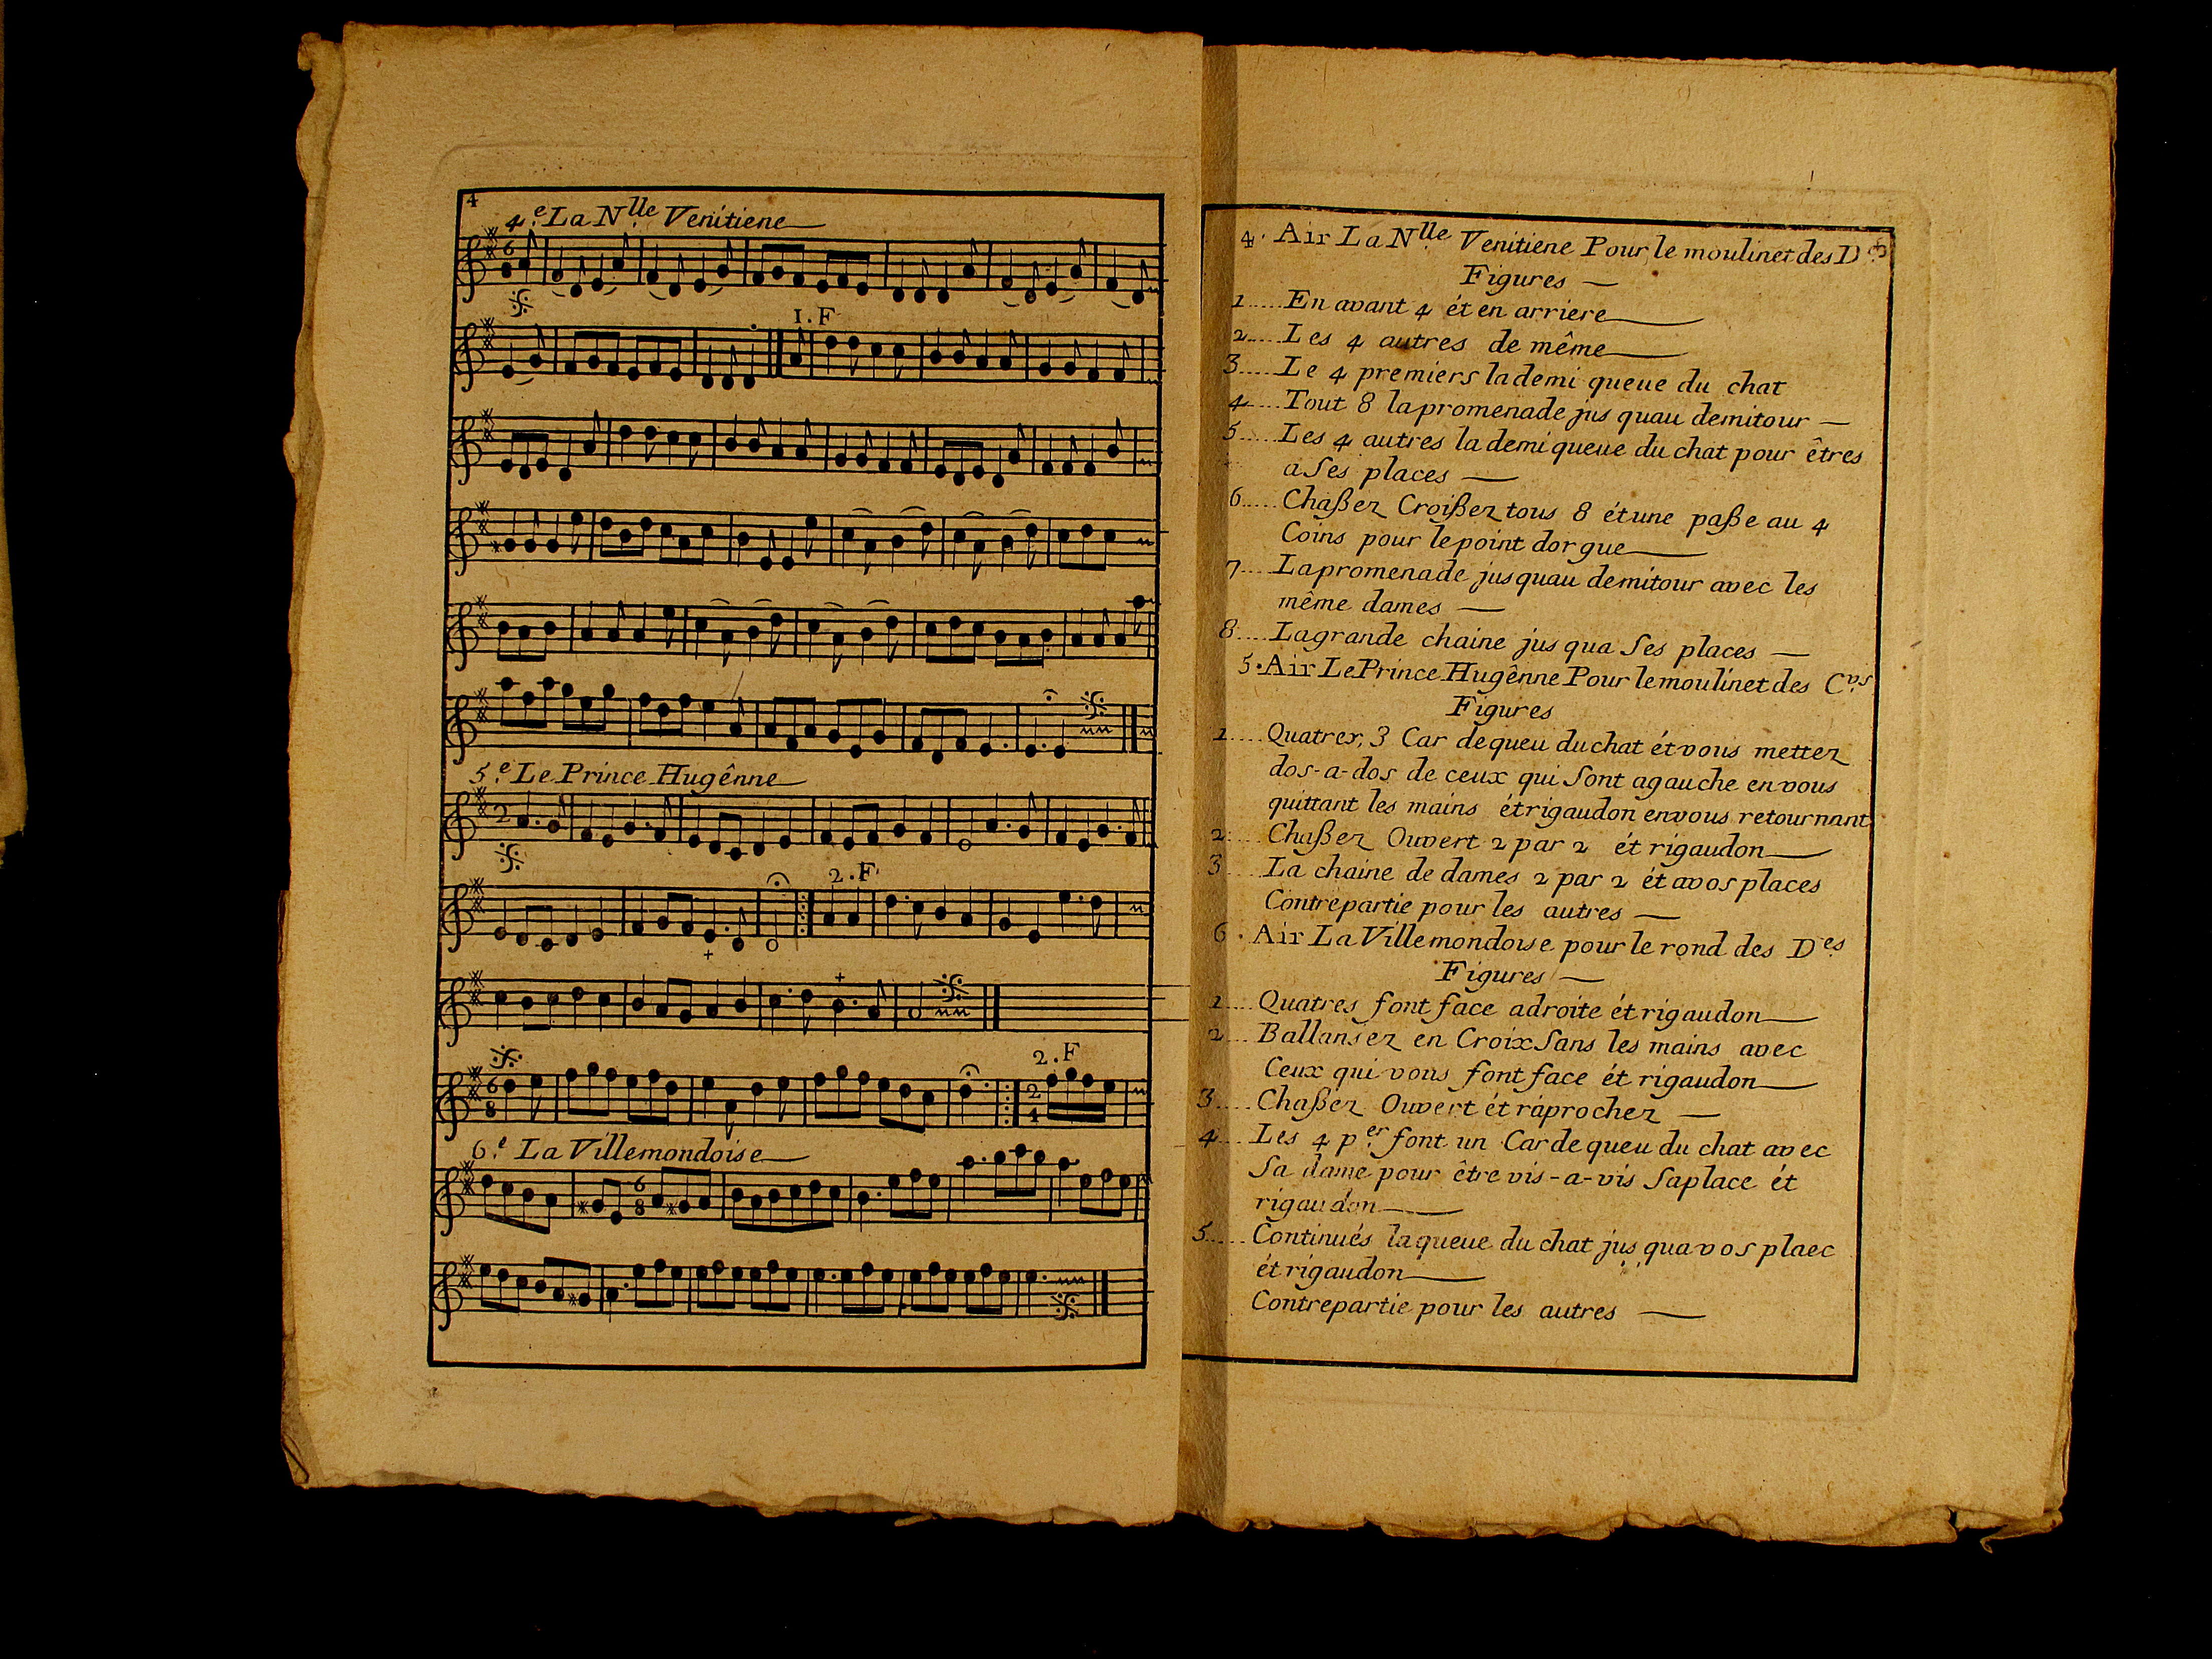 4
4.e La N.lle Venitiene
1. F
5.e Le Prince Hugênne
2. F
2. F
6.e La Villemondoise
4. Air La N.lle Venitiene Pour le moulinet des D
Figures
1 En avant 4 ét en arriere
2 Les 4 autres de même
3 Le 4 premiers la demi queue du chat
4 Tout 8 la promenade jus quau demitour
5 Les 4 autres la demi queue du chat pour êtres
a Ses places
6 Chaßez Croißez tous 8 ét une paße au 4
Coins pour le point dorgue
7 La promenade jusquau demitour avec les
même dames
8 La grande chaine jus qua Ses places
5. Air Le Prince Hugênne Pour le moulinet des C.vs
Figures
1 Quatrex, 3 Car de queu du chat ét vous mettez
dos-a-dos de ceux qui Sont agauche en vous
quittant les mains ét rigaudon en vous retournant
2 Chaßez Ouvert 2 par 2 ét rigaudon
3 La chaine de dames 2 par 2 ét avos places
Contrepartie pour les autres
6. Air La Villemondoise pour le rond des D.es
Figures
1 Quatres font face adroite ét rigaudon
2 Ballansez en Croix Sans les mains avec
Ceux qui vous font face ét rigaudon
3 Chaßez Ouvert ét raprochez
4 Les 4 p.er font un Car de queu du chat avec
Sa dame pour être vis-a-vis Saplace ét
rigaudon
5 Continués la queue du chat jus qua vos plaec
ét rigaudon
Contrepartie pour les autres